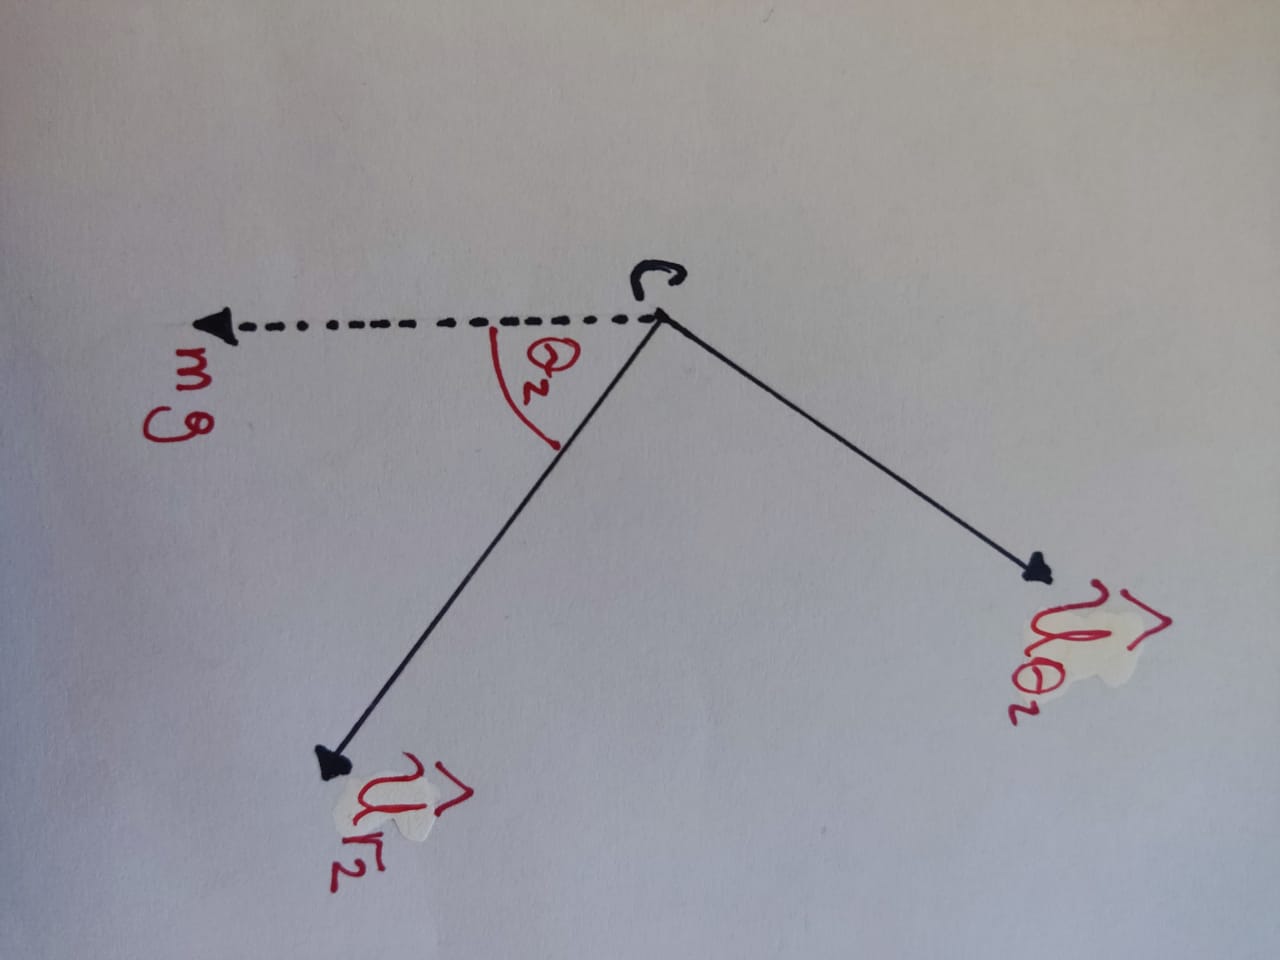 û_θ₂
C
θ₂
û_r₂
mg